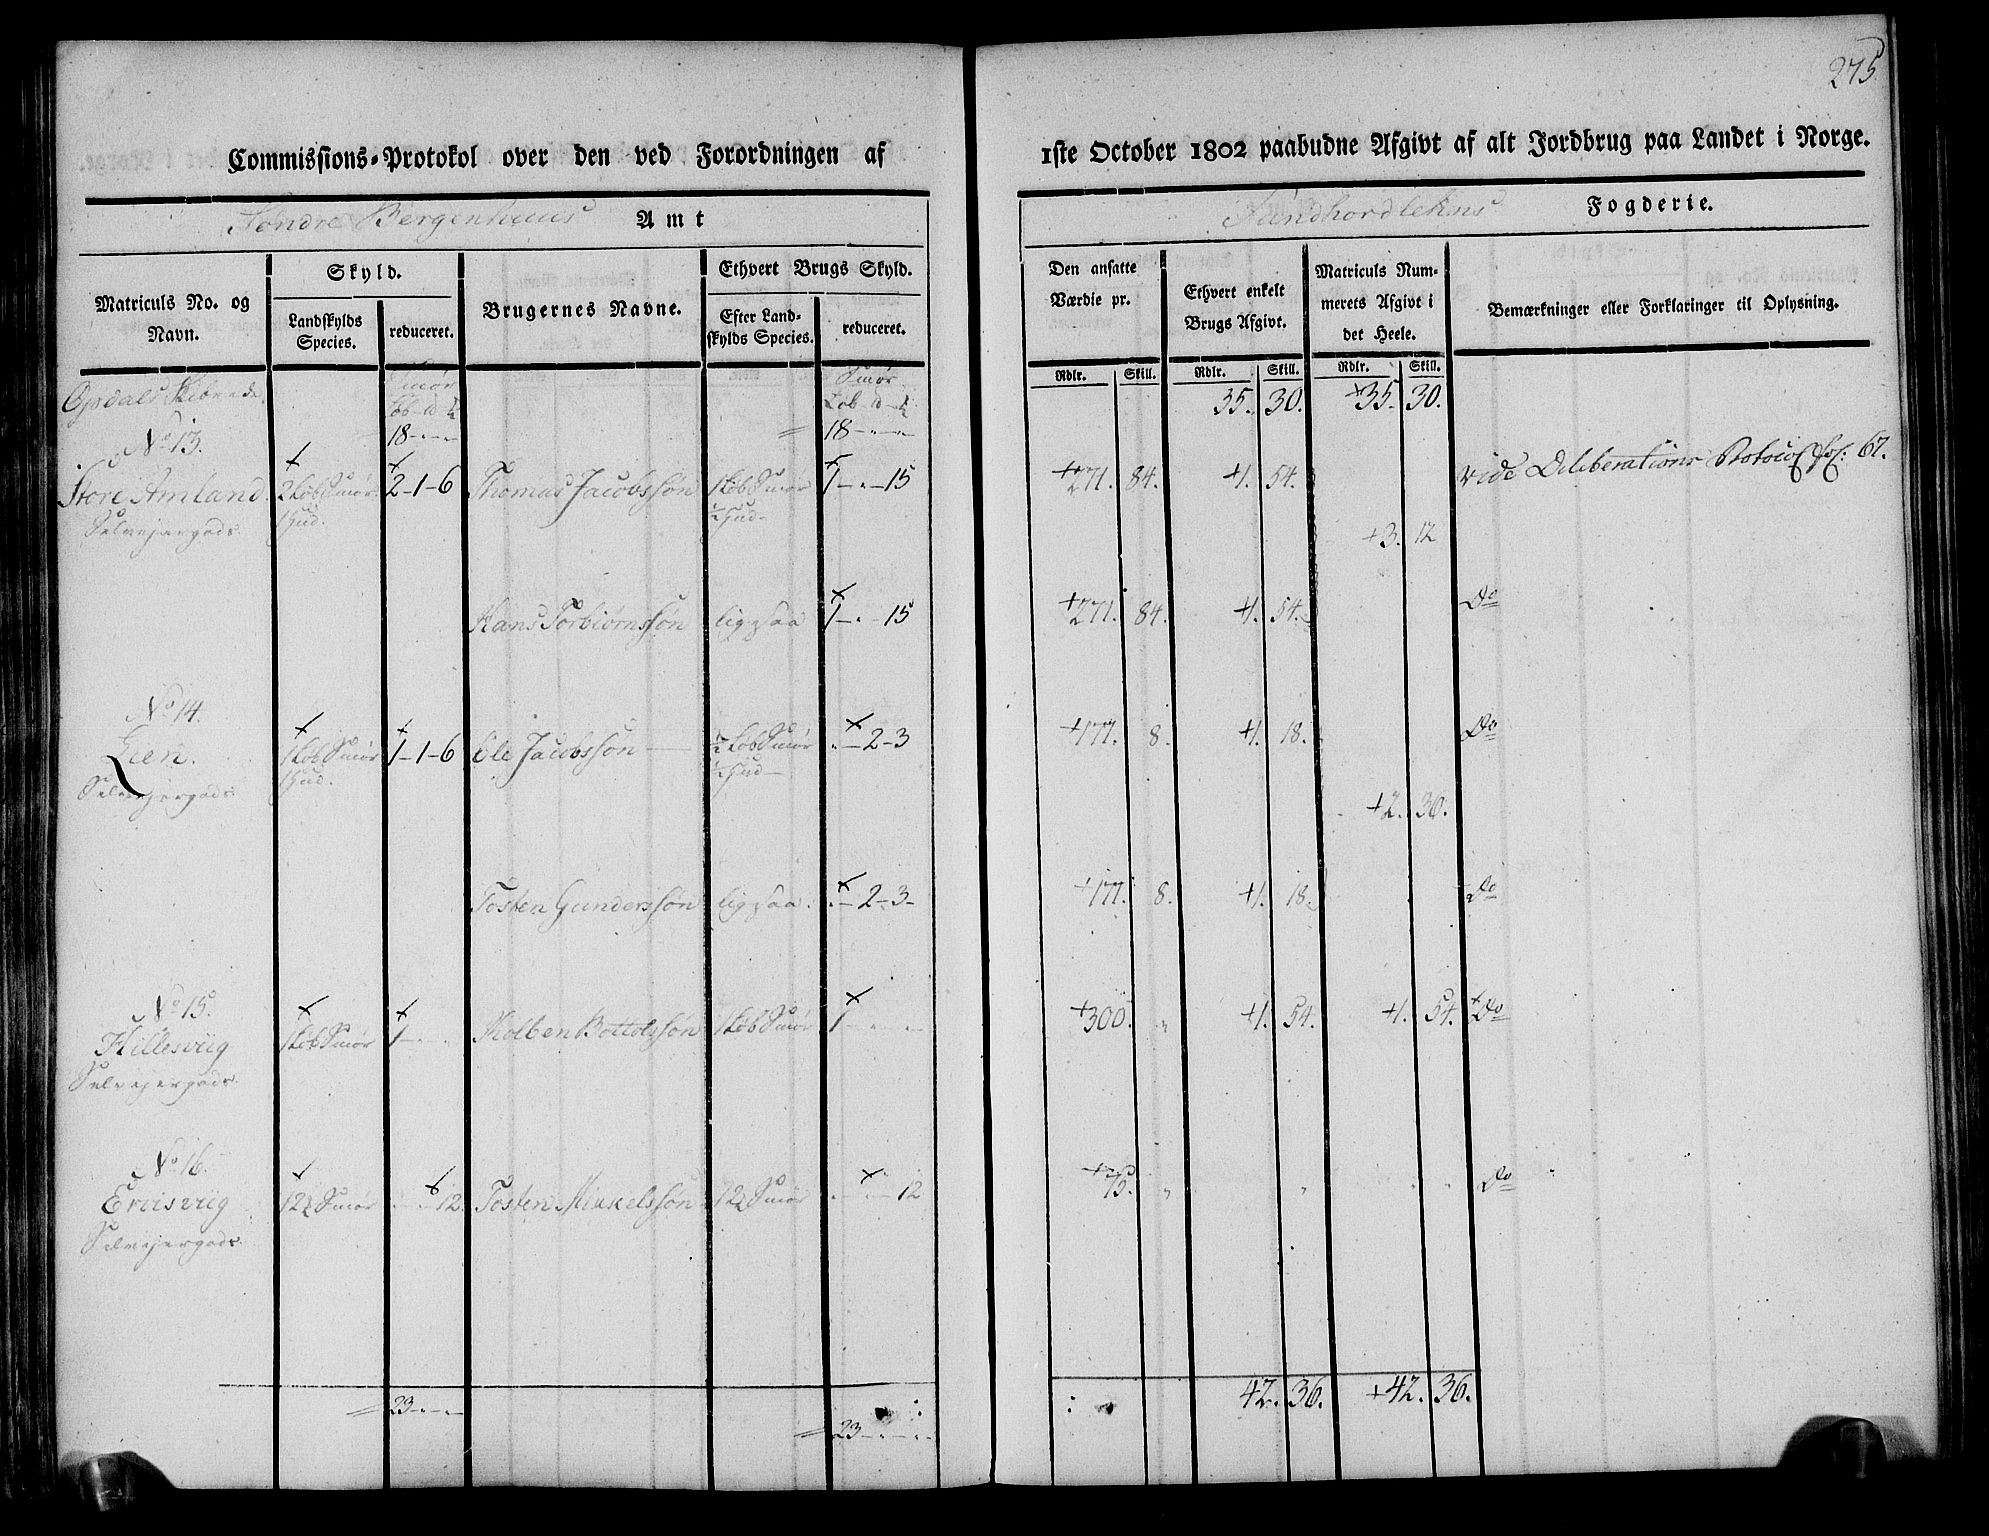 275
Commissions-Protokol over den ved Forordningen af 1ste October 1802 paabudne Afgivt af alt Jordbrug paa Landet i Norge.
Søndre Bergenhuus Amt
Sundhordlehns Fogderie.
Matriculs No. og Navn.
Skyld.
Landskylds Species.
reduceret.
Brugernes Navne.
Ethvert Brugs Skyld.
Efter Landskylds Species.
reduceret.
Den ansatte Værdie pr.
Ethvert enkelt Brugs Afgivt.
Matriculs Nummerets Afgivt i det Heele.
Bemærkninger eller Forklaringer til Oplysning.
Rdlr. Skill. Rdlr. Skill. Rdlr. Skill.
Opdals Skibrede. Smør Smør
35. 30. +35. 30.
18 - " - " 18 - " - "
No 13.
Store Amland. 2 Løb Smør 2-1-6 Thomas Jacobssøn 1 Løb Smør 1-"-15 +271. 84. +1. 54. vide Deliberations Protocol fol: 67.
Selvejergods. 1 Hud. ½ Hud
+3. 12
Hans Torbiørnssøn ligesaa 1-"-15 +271. 84. +1. 54. Do
No 14.
Lien. 1 Løb Smør 1-1-6 Ole Jacobssøn ½ Løb Smør "-2-3 +177. 8. +1. 18. Do
Selvejergods 1 Hud. ½ Hud
+2. 36.
Tosten Gunderssøn ligesaa. "-2-3- +177. 8. +1. 18. Do
No 15.
Hillesviig 1 Løb Smør 1 - " - " Kolben Bottolfssøn 1 Løb Smør 1 - " - " +300. " +1. 54. +1. 54. Do
Selvejergods.
No 16.
Ervisviig 12 Smør " - " 12. Tosten Mikkelssøn 12 Smør " - " - 12 +75. " " " " Do
Selvejergods.
23 - " - " 42. 36. +42. 36.
23 - " - "